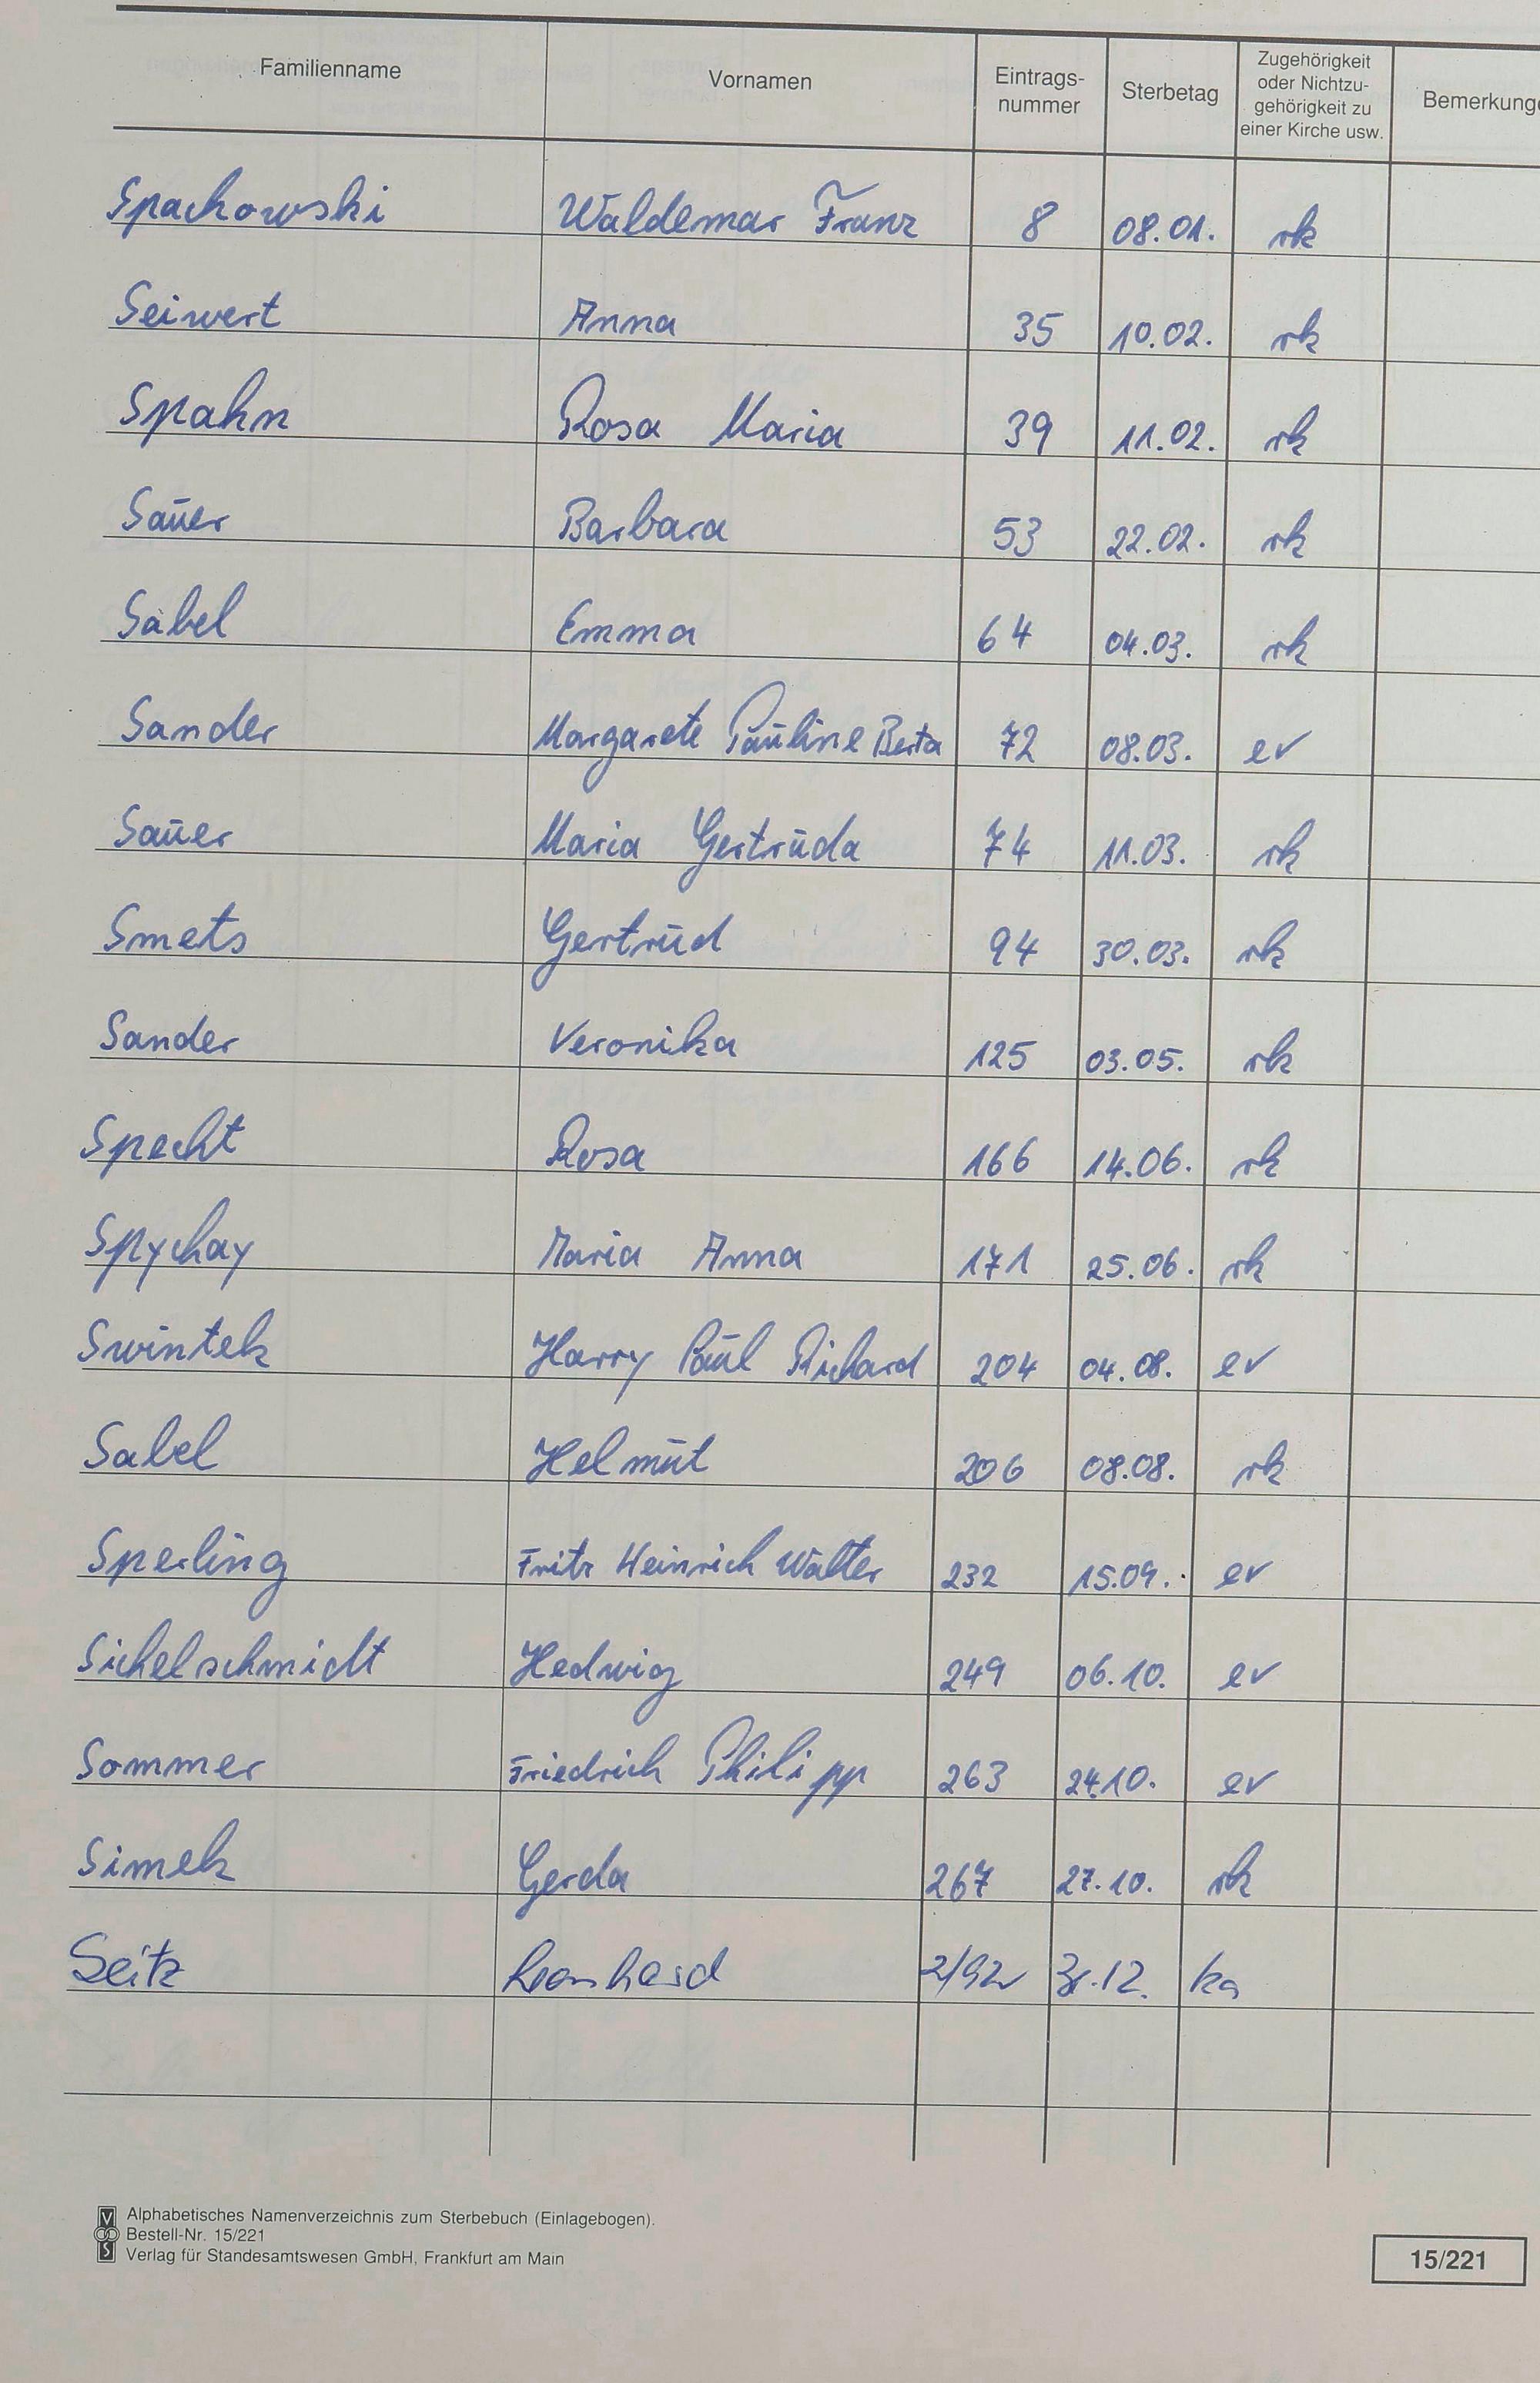 Familienname Vornamen Eintrags-nummer Sterbetag Zugehörigkeit oder Nichtzu-gehörigkeit zu einer Kirche usw. Bemerkung
Spachowski Waldemar Franz 8 08.01. rk
Seiwert Anna 35 10.02. rk
Spahn Rosa Maria 39 11.02. rk
Sauer Barbara 53 22.02. rk
Sabel Emma 64 04.03. rk
Sander Margarete Pauline Berta 72 08.03. ev
Sauer Maria Gertruda 74 11.03. rk
Smets Gertrud 94 30.03. rk
Sander Veronika 125 03.05. rk
Specht Rosa 166 14.06. rk
Spychay Maria Anna 171 25.06. rk
Swintek Harry Paul Richard 204 04.08. ev
Sabel Helmut 206 08.08. rk
Sperling Fritz Heinrich Walter 232 15.09. ev
Sichelschmidt Hedwig 249 06.10. ev
Sommer Friedrich Philipp 263 24.10. ev
Simek Gerda 267 27.10. rk
Seitz Leonhard 2/92 31.12. ka
Alphabetisches Namenverzeichnis zum Sterbebuch (Einlagebogen).
Bestell-Nr. 15/221
Verlag für Standesamtswesen GmbH, Frankfurt am Main
15/221